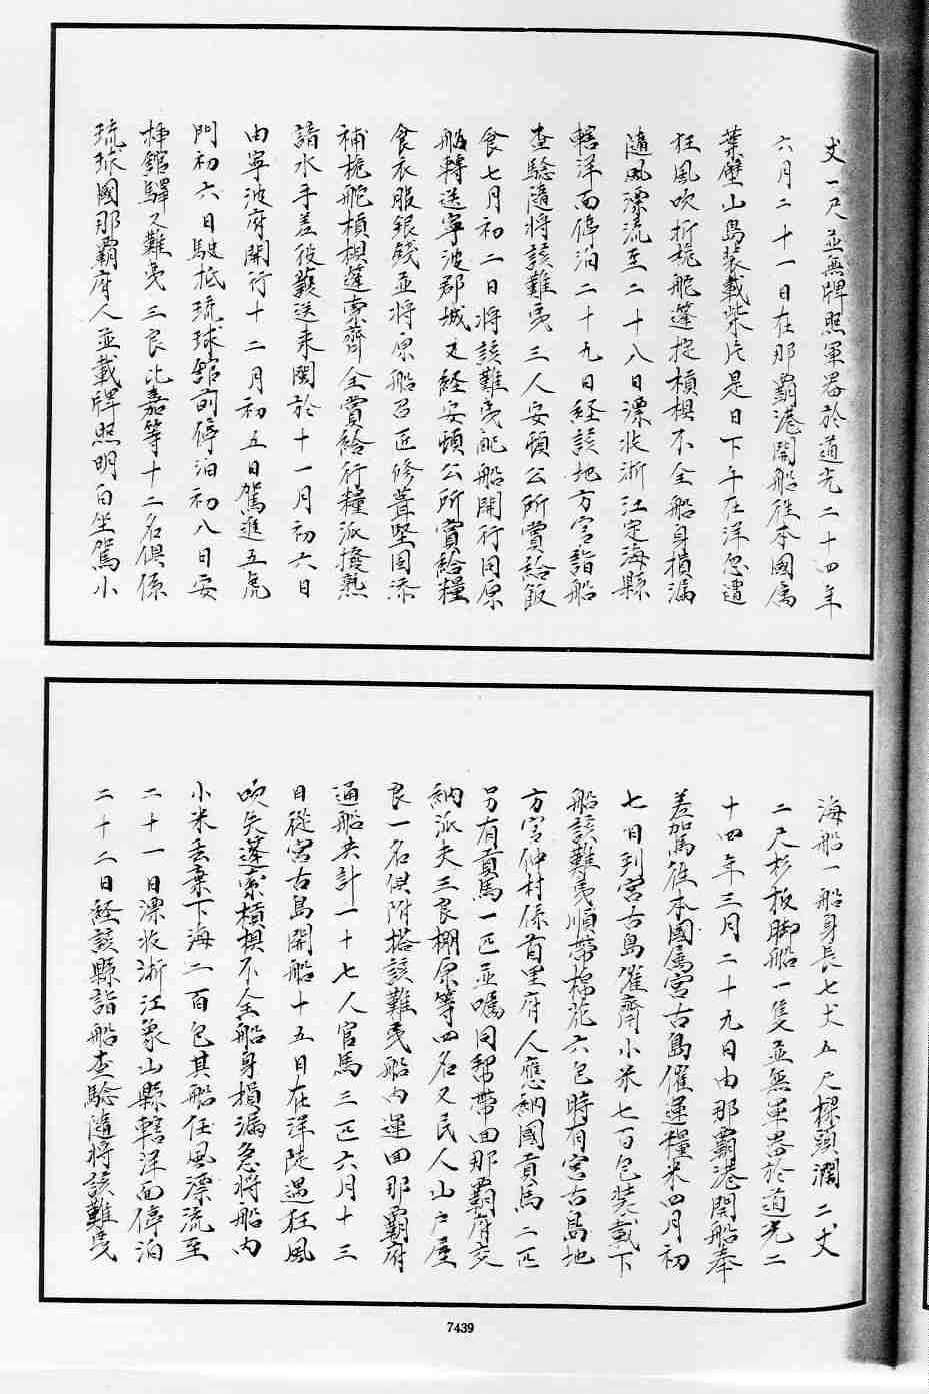 丈一尺並無牌照軍器於道光二十四年
六月二十一日在那霸港開船徃本國属
葉壁山島装載柴片是日下午在洋忽遭
狂風吹折桅舵篷椗槓椇不全船身損漏
随風漂流至二十八日漂收浙江定海縣
轄洋面停泊二十九日経該地方官詣船
查驗隨將該難夷三人安頓公所賞給飯
食七月初二日將該難夷配船開行同原
船轉送寧波郡城又経安頓公所賞給糧
食衣服銀錢並將原船召匠修葺堅固添
補桅舵槓椇篷索齊全賞給行糧派撥熟
諳水手差役護送来閩於十一月初六日
由寧波府開行十二月初五日駕進五虎
門初六日駛抵琉球館前停泊初八日安
揷館驛又難夷三良比嘉等十二名俱係
琉球國那霸府人並載牌照明白坐駕小
海船一船身長七丈五尺樑頭濶二丈
二尺杉板脚船一隻並無軍器於道光二
十四年三月二十九日由那霸港開船奉
差駕徃本國属宮古島催運糧米四月初
七日到宮古島催齊小米七百包装載下
船該難夷順帶棉花六包時有宮古島地
方官仲村係首里府人應納國貢馬二匹
另有貢馬一匹並囑同幇帶回那霸府交
納派夫三良棚原等四名又民人山戶屋
良一名俱附搭該難夷船內運回那霸府
通船共計一十七人官馬三匹六月十三
日從宮古島開船十五日在洋陡遇狂風
吹失篷索槓椇不全船身損漏急將船內
小米丢棄下海二百包其船任風漂流至
二十一日漂收浙江象山縣轄洋面停泊
二十二日経該縣詣船查驗隨將該難夷
7439